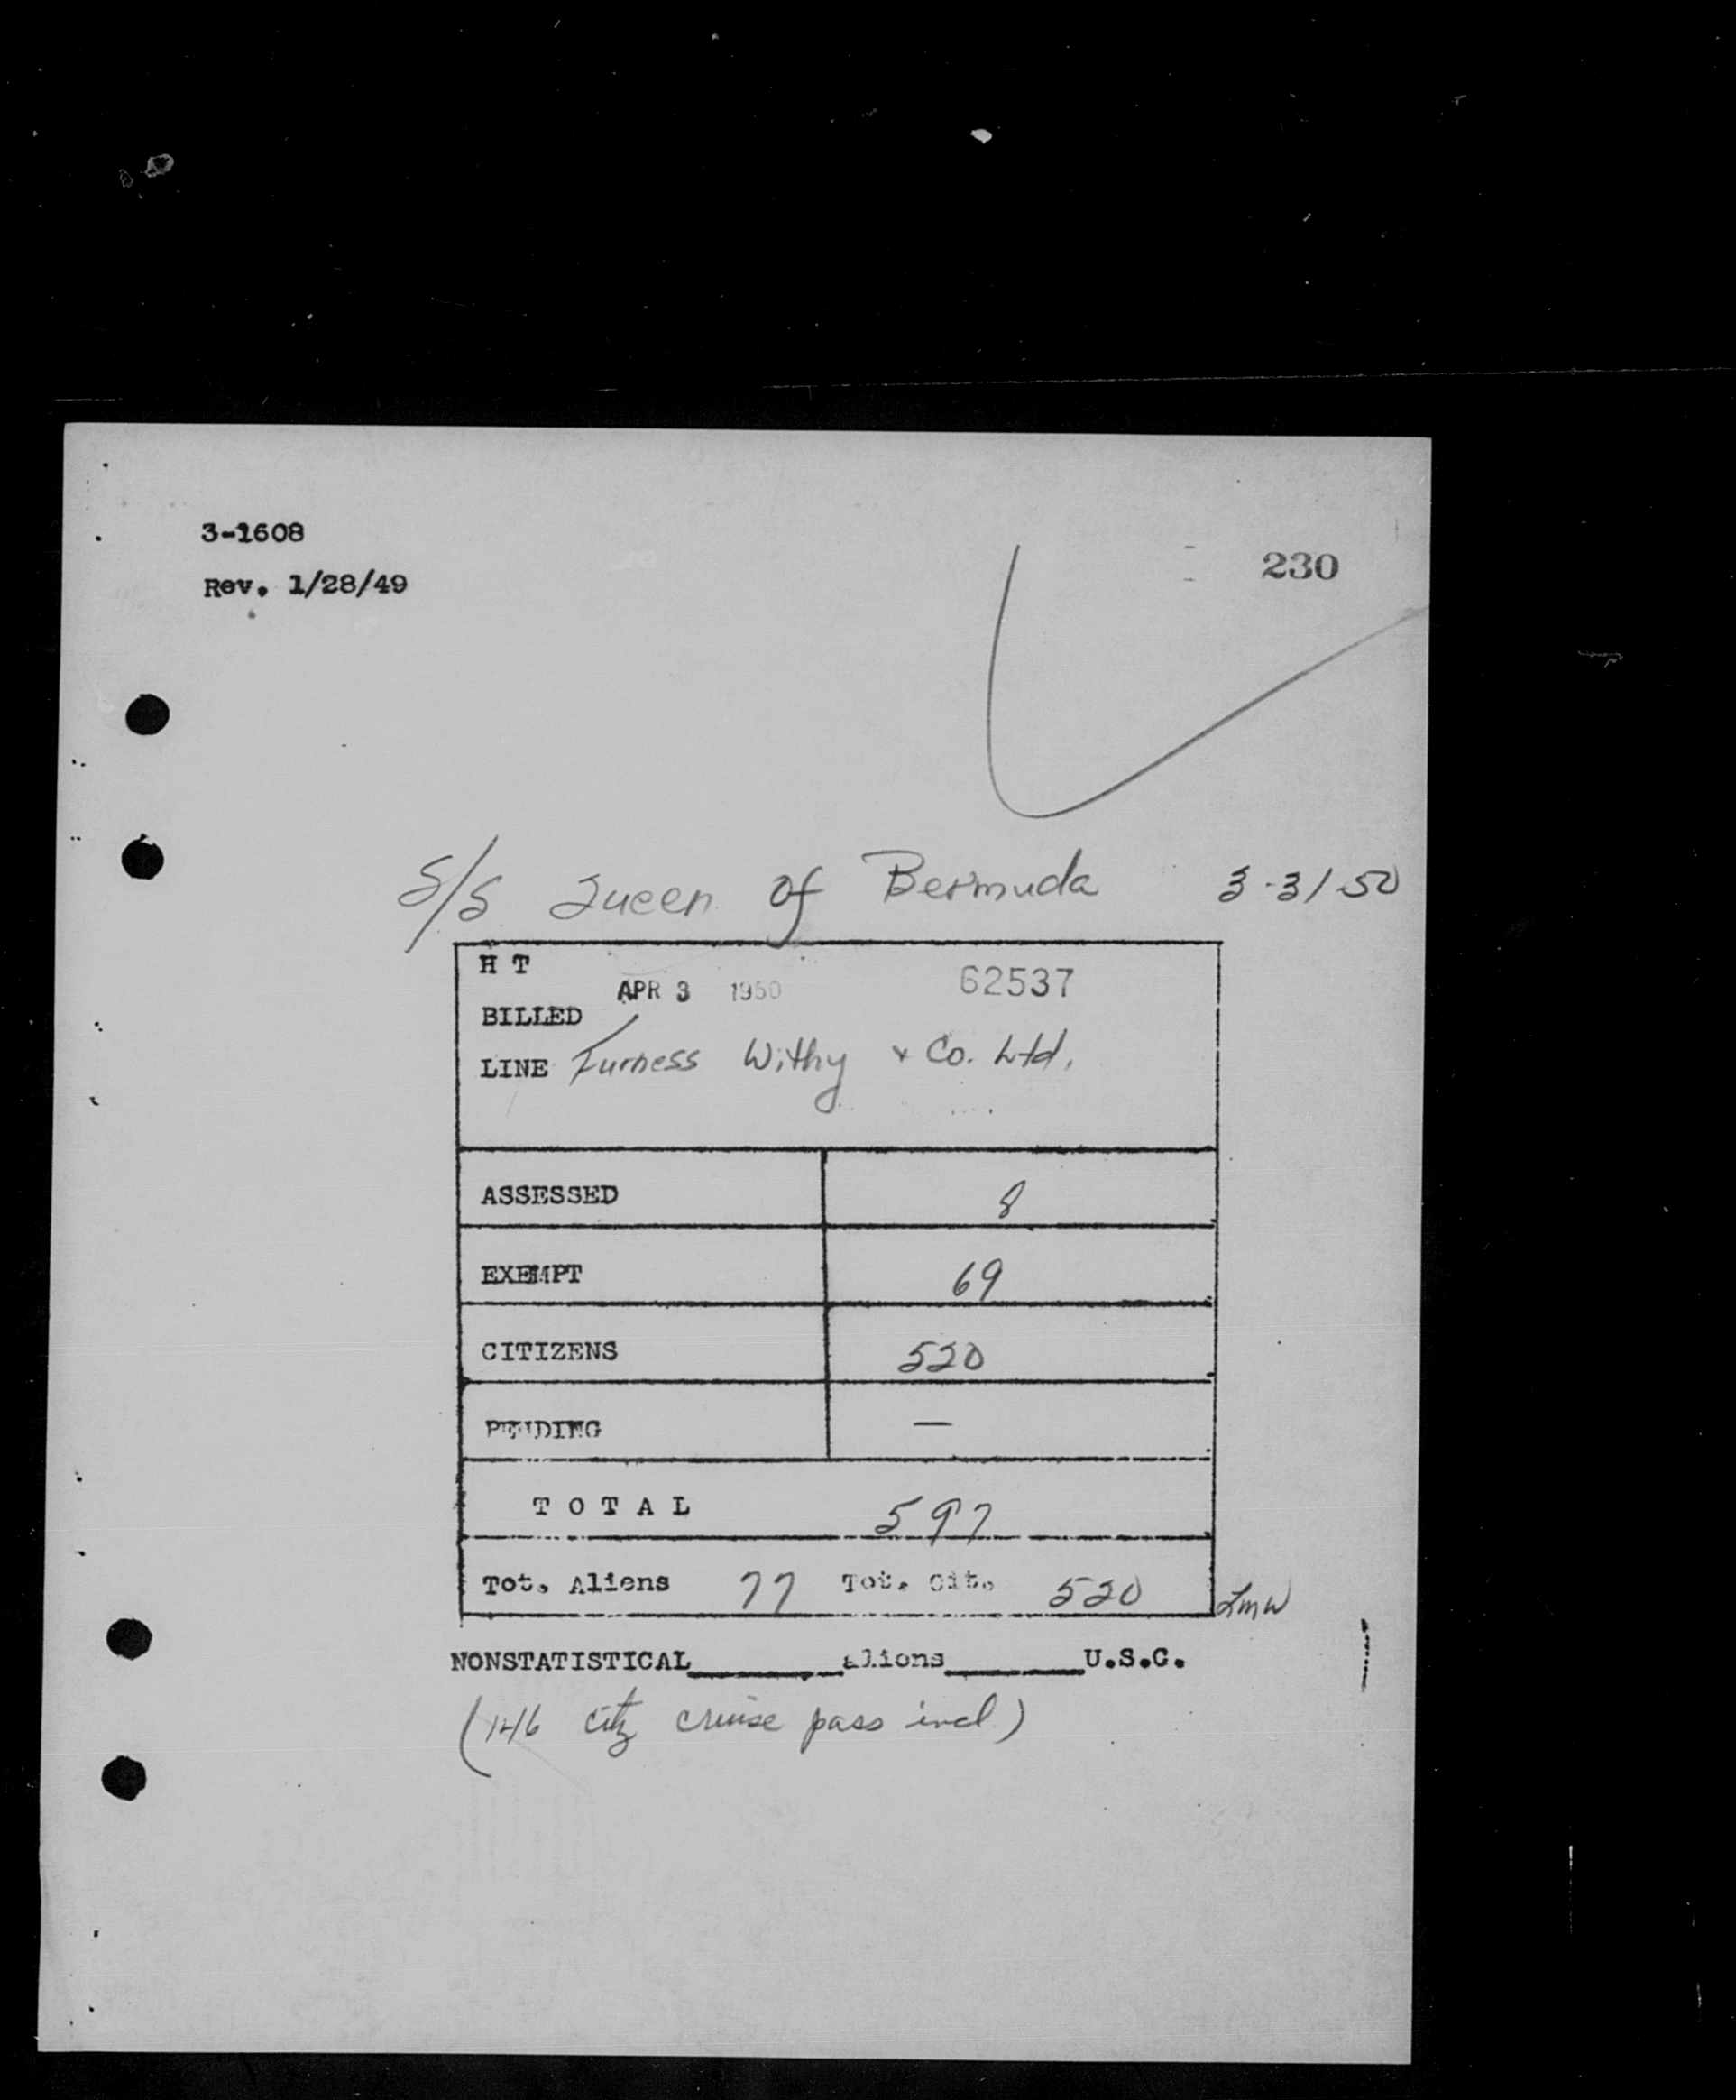 3-1608
230
Rev. 1/28/49
S/S Queen of Bermuda 3-31-50
H T
APR 3 1950 62537
BILLED
LINE Furness Withy & Co. Ltd.
ASSESSED 8
EXEMPT 69
CITIZENS 520
PENDING —
T O T A L 597
Tot. Aliens 77 Tot. Cit. 520 Lmw
NONSTATISTICAL______aliens______U.S.C.
(146 citz cruise pass incl)